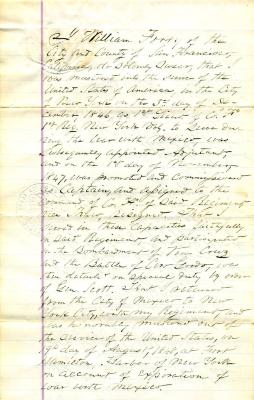 I, William Forg. of the
City and County of San Francisco,
California, do solemnly swear, that I
was mustered into the service of the
United States of America in the City
of New York on the day of
1846, as 1st Lieut. of Co.
1st Reg. New York Vol. to serve dur-
ing the war with Mexico, was
subsequently appointed Adjutant,
and on the 1st day of November,
1847, was promoted and Commissioned
as Captain, and assigned to the
command of Co. of said Regiment
resigned. That I
served in these Capacities faithfully
in said Regiment, and participated
in the Bombardment of Vera Cruz
and the Battle of Cerro Gordo, was
then detailed on special duty by order
of Gen. Scott. That I returned
from the City of Mexico to New
York City, with my Regiment, and
was honorably mustered out of
the service of the United States, on
day of August, 1848, at Fort
Hamilton, Harbor of New York
on account of Expiration of
war with Mexico.